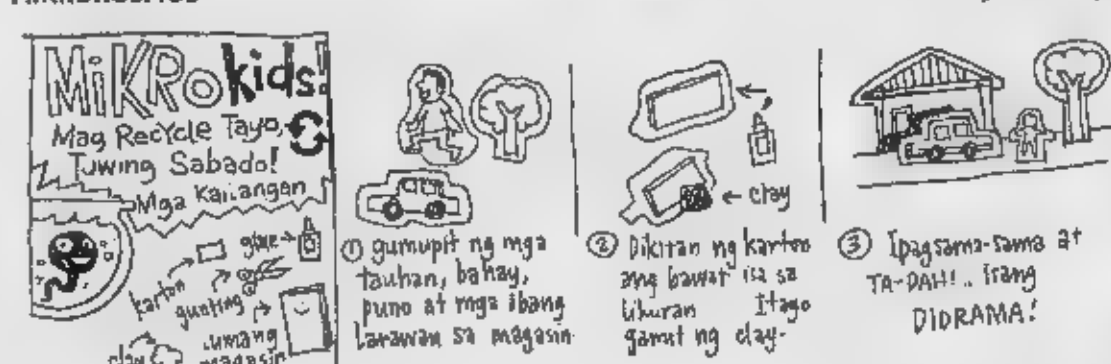 MiKRo kids!
Mag Recycle Tayo,
Tuwing Sabado!
Mga Kailangan
glue
karton
gunting
lumang
magasin
clay
① gumupit ng mga
tauhan, bahay,
puno at mga ibang
larawan sa magasin.
← clay
② Dikitan ng karton
ang bawat isa sa
likuran Itago
gamit ng clay.
③ Ipagsama-sama at
TA-DAH!.. isang
DIORAMA!